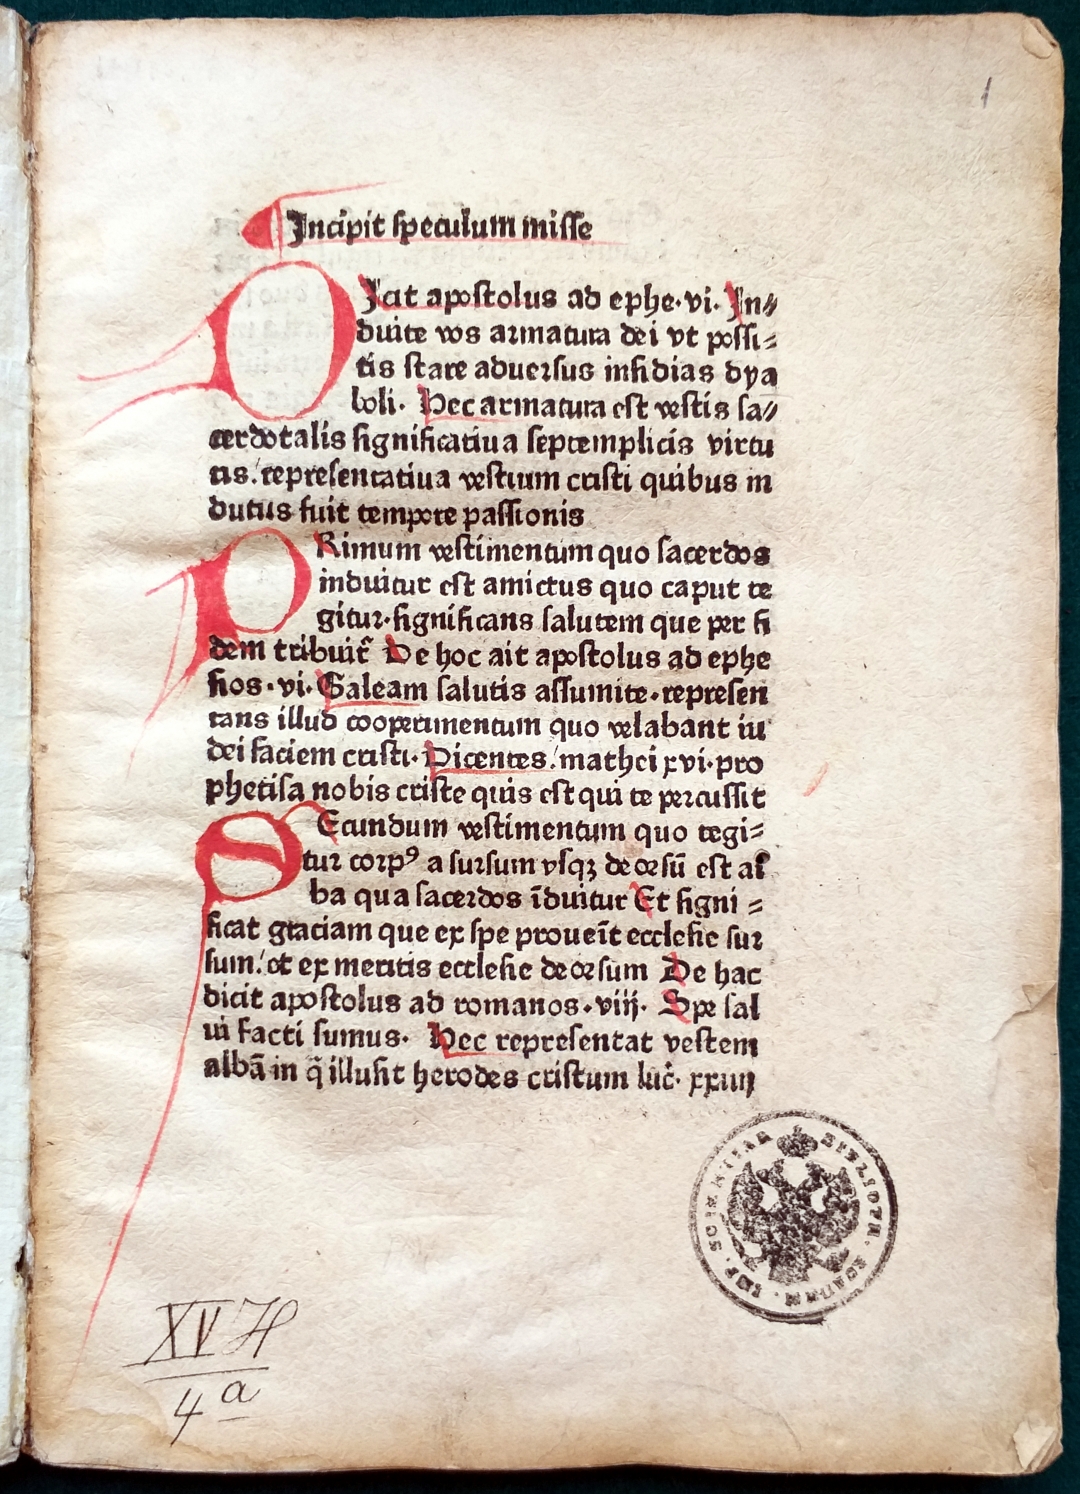 1
Incipit speculum misse
DIcit apostolus ad ephe·vi· In⸗
duite vos armatura dei vt possi⸗
tis stare aduersus insidias dya
boli· Hec armatura est vestis sa⸗
cerdotalis significatiua septemplicis virtu
tis/ representatiua vestium cristi quibus in
dutus fuit tempore passionis
PRimum vestimentum quo sacerdos
induitur est amictus quo caput te
gitur·significans salutem que per fi
dem tribuit̃ De hoc ait apostolus ad ephe
sios·vi·Galeam salutis assumite·represen
tans illud cooperimentum quo velabant iu
dei faciem cristi· Dicentes/ mathei xvi·pro
phetisa nobis criste quis est qui te percussit
SEcundum vestimentum quo tegi⸗
tur corpꝰ a sursum vsqꝫ deorsū est al
ba qua sacerdos īduitur Et signi⸗
ficat graciam que ex spe proueīt ecclesie sur
sum/ et ex meritis ecclesie deorsum De hac
dicit apostolus ad romanos·viij· Spe sal
ui facti sumus· Hec representat vestem
albā in q̄ illusit herodes cristum luc̄· xxiiij
BIBLIOTH. ACADEM. IMP. SCIENTIAR
XV H
4 a